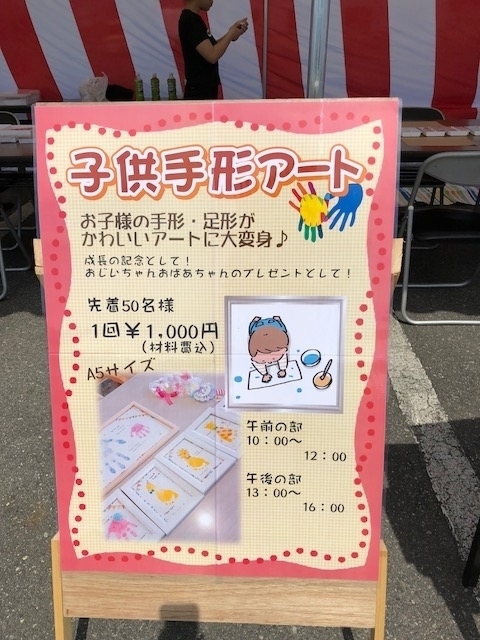 子供手形アート
お子様の手形・足形が
かわいいアートに大変身♪
成長の記念として！
おじいちゃんおばあちゃんのプレゼントとして！
先着50名様
1回￥1,000円
(材料費込)
A5サイズ
午前の部
10：00～
12：00
午後の部
13：00～
16：00